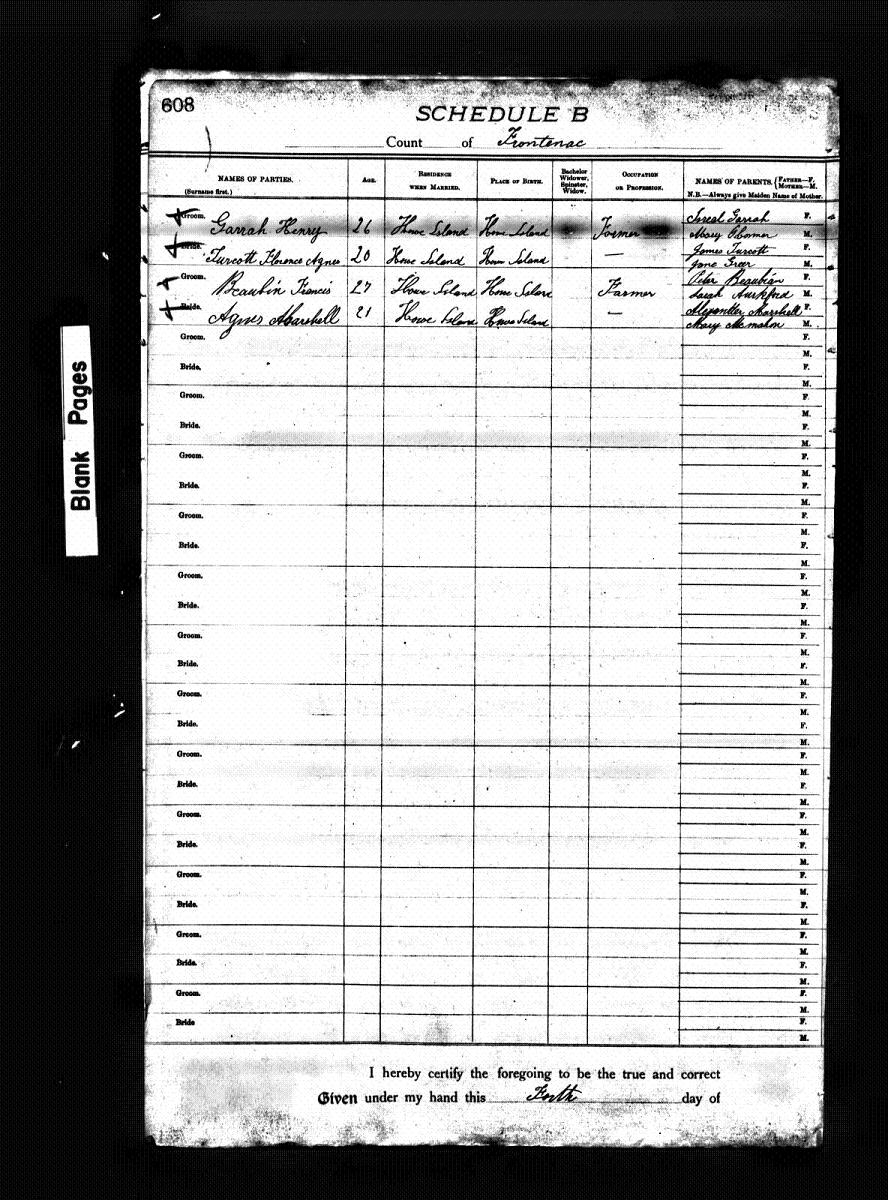 608
SCHEDULE B
Count of Frontenac
NAMES OF PARTIES.
(Surname first.)
AGE.
RESIDENCE
WHEN MARRIED.
PLACE OF BIRTH.
Bachelor
Widower,
Spinster,
Widow.
OCCUPATION
OR PROFESSION.
NAMES OF PARENTS. {FATHER—F. MOTHER—M.
N.B.—Always give Maiden Name of Mother.
Groom. Garrah Henry 26 Howe Island Howe Island Farmer Garrah F.
Mary M.
Bride. Turcott Florence Agnes 20 Howe Island Howe Island — James Turcott F.
Jane Greer M.
Groom. Beaubin Francis 27 Howe Island Howe Island Farmer Peter Beaubian F.
Sarah M.
Bride. Agnes Marshell 21 Howe Island Howe Island — Marshell F.
Mary Mcmahon M.
Groom. F.
M.
Bride. F.
M.
Groom. F.
M.
Bride. F.
M.
Groom. F.
M.
Bride. F.
M.
Groom. F.
M.
Bride. F.
M.
Groom. F.
M.
Bride. F.
M.
Groom. F.
M.
Bride. F.
M.
Groom. F.
M.
Bride. F.
M.
Groom. F.
M.
Bride. F.
M.
Groom. F.
M.
Bride. F.
M.
Groom. F.
M.
Bride. F.
M.
Groom. F.
M.
Bride. F.
M.
Groom. F.
M.
Bride F.
M.
I hereby certify the foregoing to be the true and correct
Given under my hand this Forth day of
Blank Pages